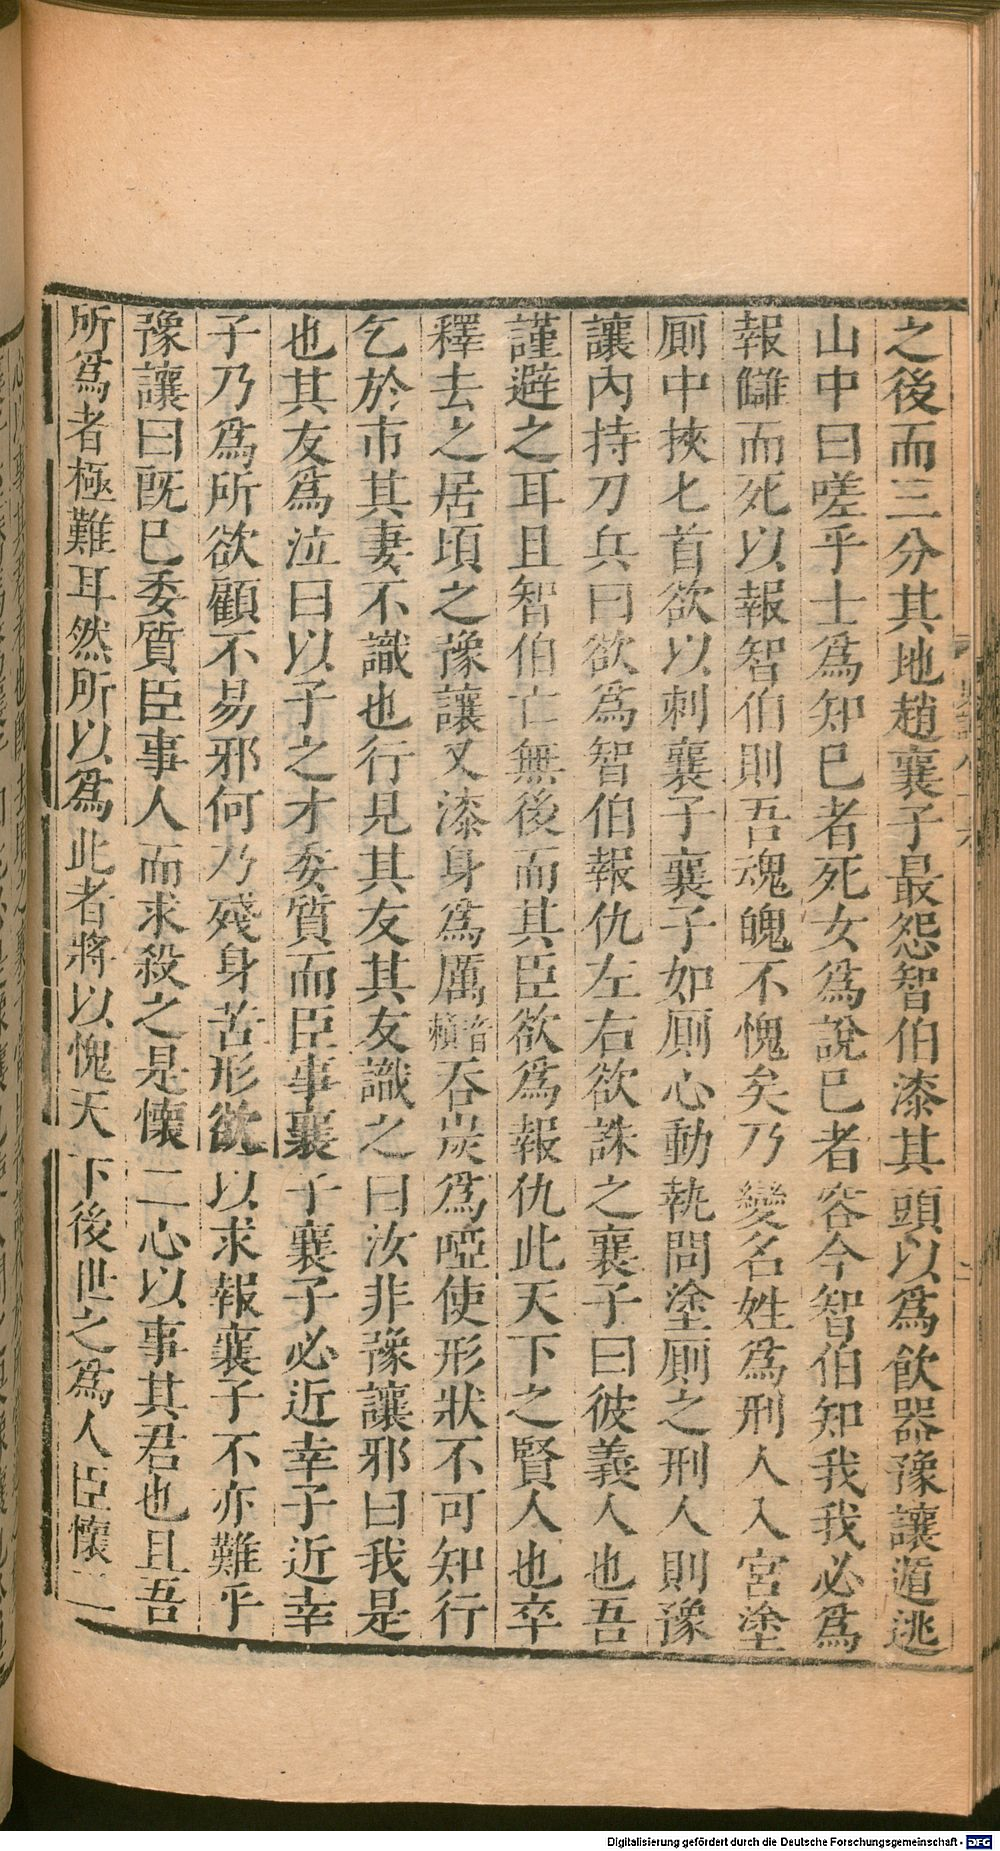 之後而三分其地趙襄子最怨智伯漆其頭以爲飲器豫讓遁逃
山中曰嗟乎士爲知巳者死女爲說巳者容今智伯知我我必爲
報讎而死以報智伯則吾魂魄不愧矣乃變名姓爲刑人入宮塗
厠中挾匕首欲以刺襄子襄子如厠心動執問塗厠之刑人則豫
讓內持刀兵曰欲爲智伯報仇左右欲誅之襄子曰彼義人也吾
謹避之耳且智伯亡無後而其臣欲爲報仇此天下之賢人也卒
釋去之居頃之豫讓又漆身爲厲音賴吞炭爲啞使形狀不可知行
乞於市其妻不識也行見其友其友識之曰汝非豫讓邪曰我是
也其友爲泣曰以子之才委質而臣事襄子襄子必近幸子近幸
子乃爲所欲顧不易邪何乃殘身苦形欲以求報襄子不亦難乎
豫讓曰旣巳委質臣事人而求殺之是懷二心以事其君也且吾
所爲者極難耳然所以爲此者將以愧天下後世之爲人臣懷二
Digitalisierung gefördert durch die Deutsche Forschungsgemeinschaft - DFG